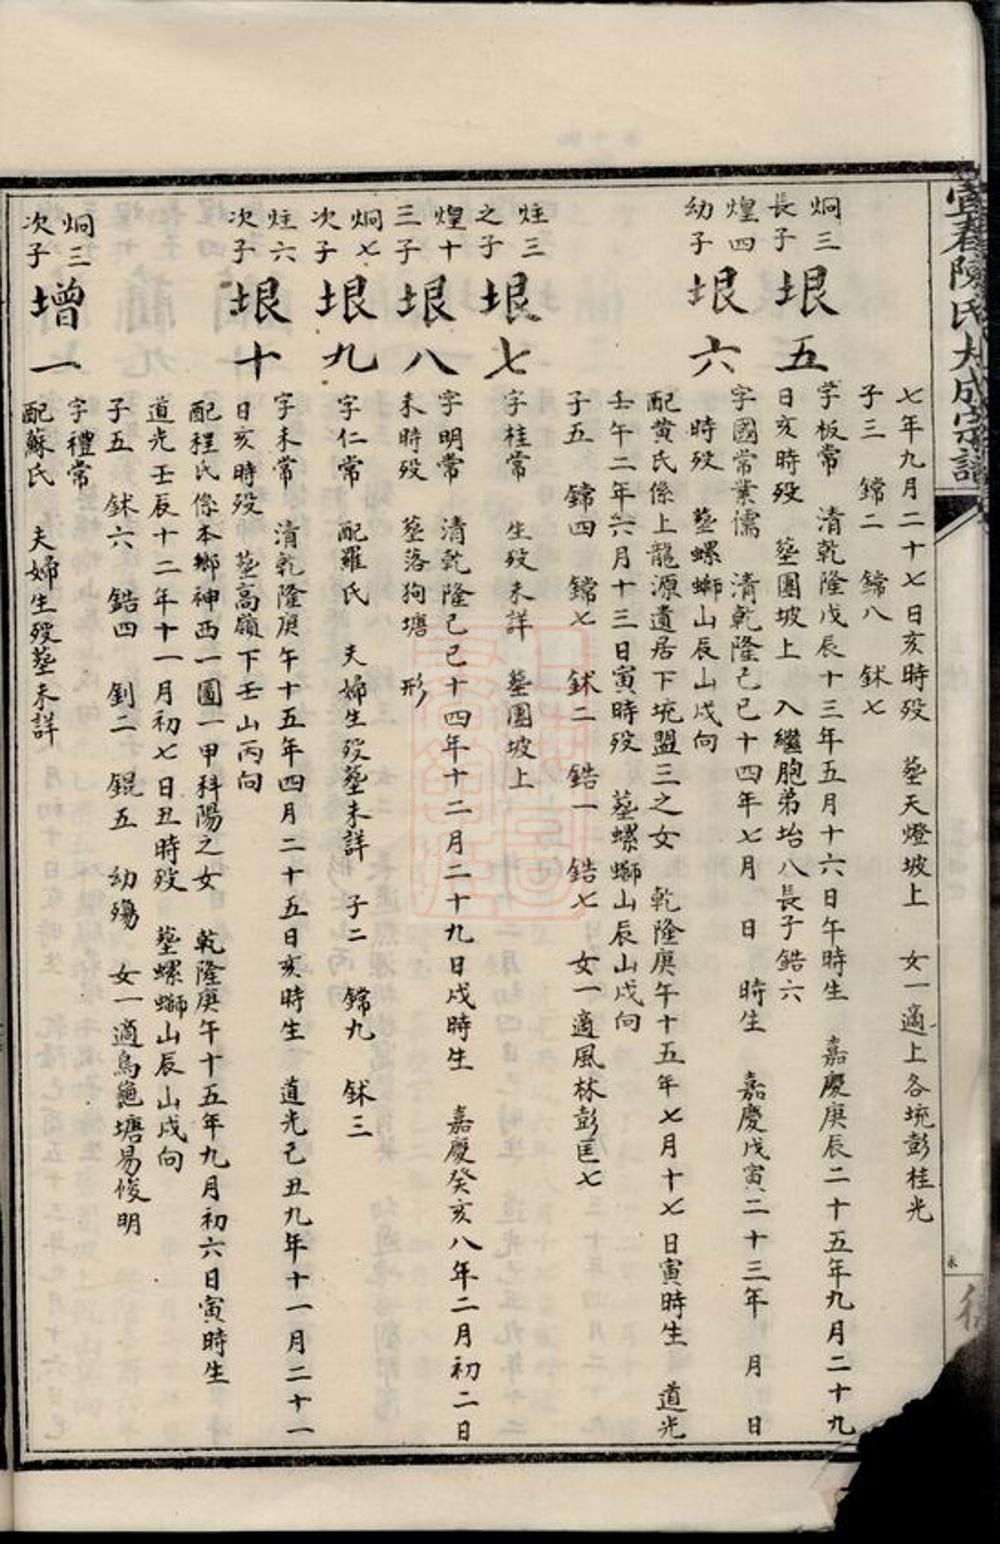 宜春陳氏大成宗譜
七年九月二十七日亥時歿 塟天燈坡上 女一適上各垸彭桂光
子三 鐺二 鐺八 鉥七
炯三長子
垠五
字板常 清乾隆戊辰十三年五月十六日午時生 嘉慶庚辰二十五年九月二十九
日亥時歿 塟團坡上 入繼胞弟坮八長子鋯六
煌四幼子
垠六
字國常業儒 清乾隆己巳十四年七月 日 時生 嘉慶戊寅二十三年 月 日
時歿 塟螺螄山辰山戍向
配黄氏係上龍源遺居下垸盟三之女 乾隆庚午十五年七月十七日寅時生 道光
壬午二年六月十三日寅時歿 塟螺螄山辰山戍向
子五 鐺四 鐺七 鉥二 鋯一 鋯七 女一適風林彭匡七
炷三之子
垠七
字桂常 生歿未詳 塟團坡上
煌十三子
垠八
字明常 清乾隆己巳十四年十二月二十九日戍時生 嘉慶癸亥八年二月初二日
未時歿 塟落狗塘 形
炯七次子
垠九
字仁常 配羅氏 夫婦生歿塟未詳 子二 鐺九 鉥三
炷六次子
垠十
字未常 清乾隆庚午十五年四月二十五日亥時生 道光己丑九年十一月二十一
日亥時歿 塟高嶺下壬山丙向
配程氏係本鄉神西一圖一甲科陽之女 乾隆庚午十五年九月初六日寅時生
道光壬辰十二年十一月初七日丑時歿 塟螺螄山辰山戍向
子五 鉥六 鋯四 釗二 錕五 幼殤 女一適烏龜塘易俊明
炯三次子
增一
字禮常
配蘇氏 夫婦生歿塟未詳